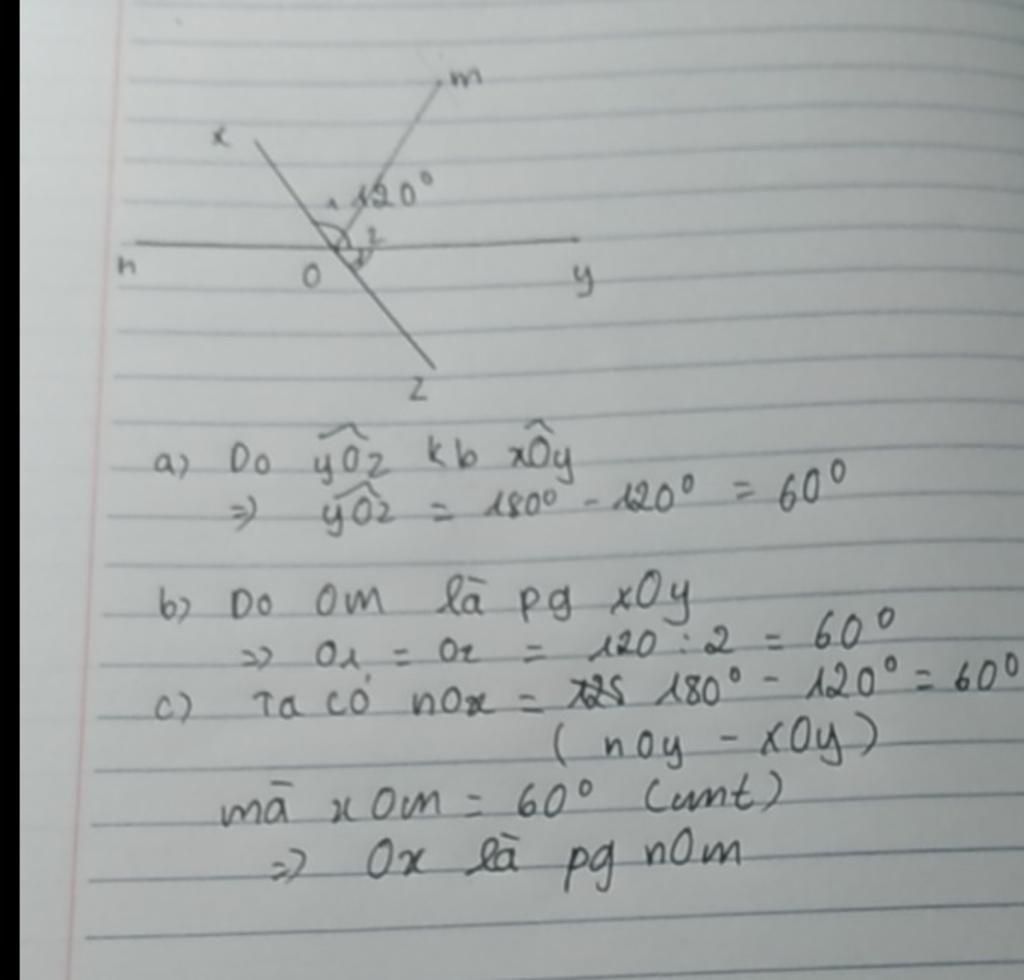 m
x
120°
1
2
n
O
y
z
a) Do yÔz kb xÔy
=> yÔz = 180° - 120° = 60°
b) Do Om là pg xOy
=> O1 = O2 = 120 : 2 = 60°
c) Ta có nOx = 180° - 120° = 60°
( nOy - xOy )
mà xOm = 60° (cmt)
=> Ox là pg nOm